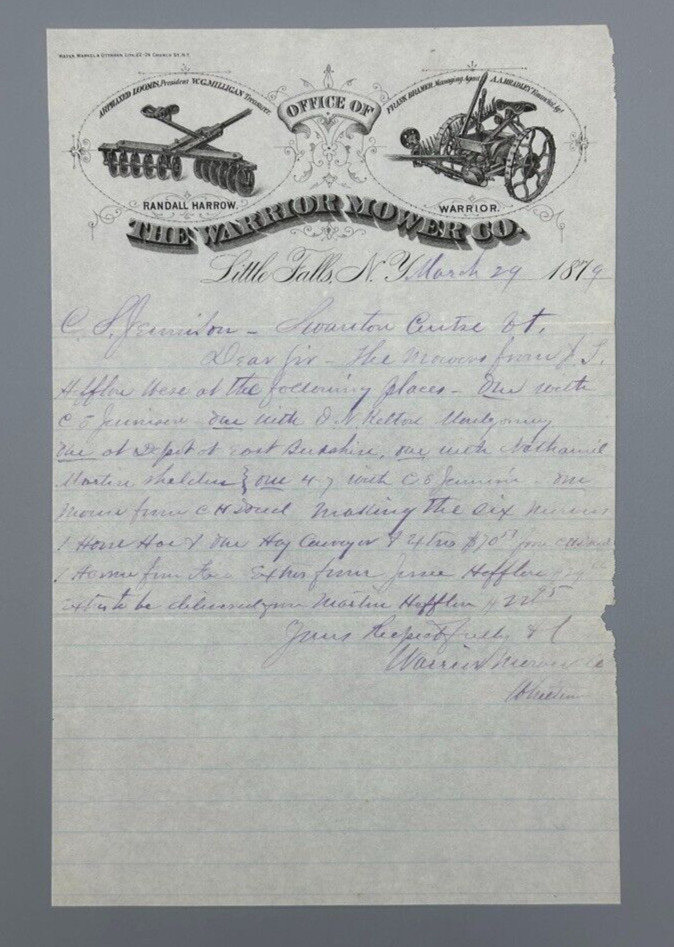 OFFICE OF
ARPHAXED LOOMIS, President W.G. MILLIGAN Treasurer.
FRANK BRAMER, Managing Agent. A.A. BRADLEY
RANDALL HARROW.
WARRIOR.
THE WARRIOR MOWER CO.
Little Falls, N.Y. March 29 1879
C. S. Jennison - Swanton Centre Vt.
Dear Sir - The Mowers from J. S.
Hefflon were at the following places - One with
C S Jennison - one with D. N. Kelton Montgomery
one at Depot at East Berkshire, one with Nathaniel
Martin Sheldon } one 4-7 with C S Jennison - one
Mower from C H making the six
1 Horse Hoe & One Hay Conveyor & Extras $70 from
1 from Extras from Jesse Hefflon
to be delivered from Martin Hefflon
Yours Respectfully &c
Warrior Mower Co